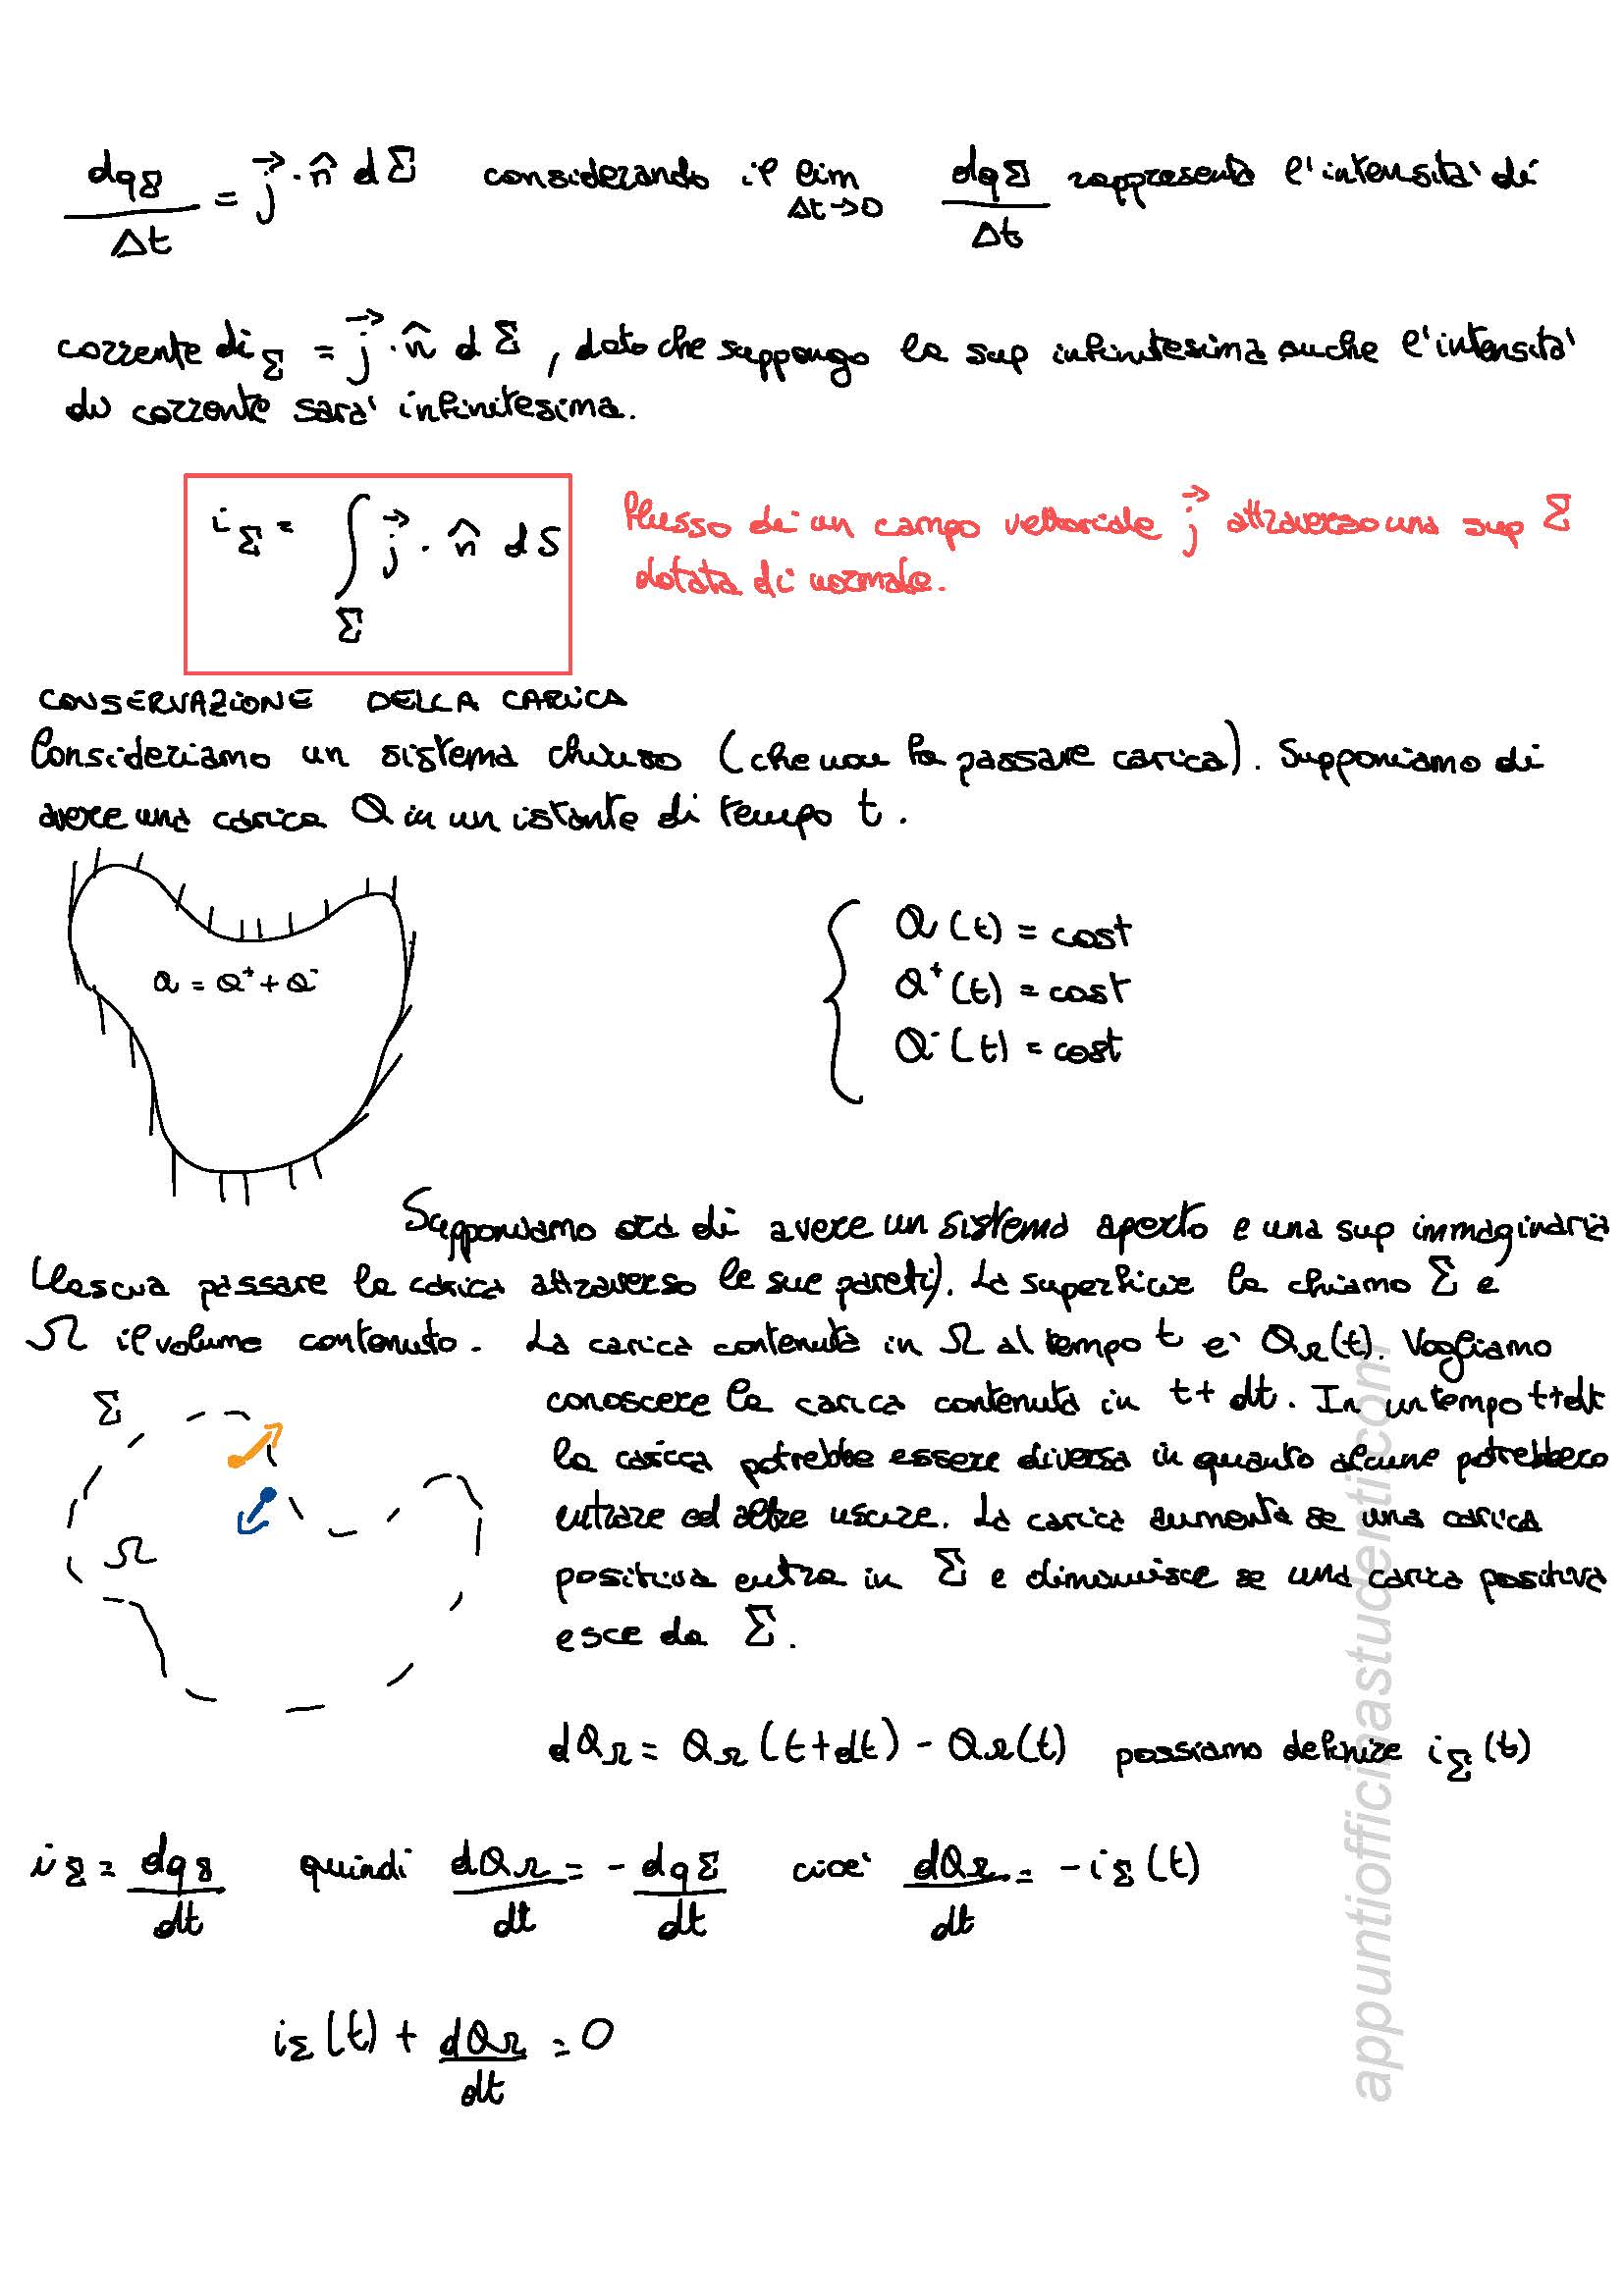 dqΣ/Δt = j⃗ · n̂ dΣ considerando il lim Δt→0 dqΣ/Δt rappresenta l'intensità di
corrente diΣ = j⃗ · n̂ dΣ, dato che suppongo la sup infinitesima anche l'intensità
di corrente sarà infinitesima.
iΣ = ∫Σ j⃗ · n̂ dS
flusso di un campo vettoriale j⃗ attraverso una sup Σ
dotata di normale.
CONSERVAZIONE DELLA CARICA
Consideriamo un sistema chiuso (che non fa passare carica). Supponiamo di
avere una carica Q in un istante di tempo t.
Q = Q⁺ + Q⁻
Q(t) = cost
Q⁺(t) = cost
Q⁻(t) = cost
Supponiamo ora di avere un sistema aperto e una sup immaginaria
(lascia passare la carica attraverso le sue pareti). La superficie la chiamo Σ e
Ω il volume contenuto. La carica contenuta in Ω al tempo t è QΩ(t). Vogliamo
conoscere la carica contenuta in t+dt. In un tempo t+dt
la carica potrebbe essere diversa in quanto alcune potrebbero
entrare ed altre uscire. La carica aumenta se una carica
positiva entra in Σ e diminuisce se una carica positiva
esce da Σ.
Σ
Ω
dQΩ = QΩ(t+dt) - QΩ(t) possiamo definire iΣ(t)
iΣ = dqΣ/dt quindi dQΩ/dt = - dqΣ/dt cioè dQΩ/dt = -iΣ(t)
iΣ(t) + dQΩ/dt = 0
appuntiofficinastudenti.com